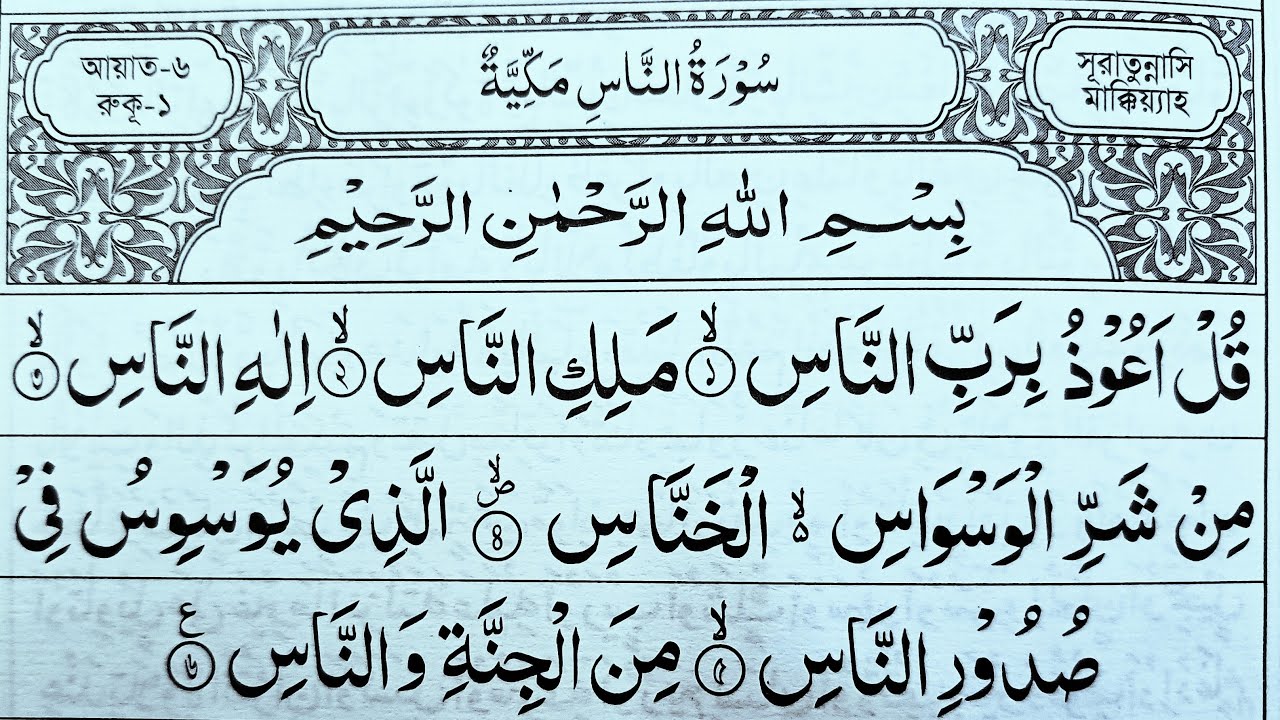 سُوْرَةُ النَّاسِ مَكِّيَّةٌ
সূরাতুন্নাসি
মাক্কিয়্যাহ
আয়াত-৬
রুকূ-১
بِسْمِ اللّٰهِ الرَّحْمٰنِ الرَّحِيْمِ
قُلْ اَعُوْذُ بِرَبِّ النَّاسِ ۙ﴿١﴾ مَلِكِ النَّاسِ ۙ﴿٢﴾ اِلٰهِ النَّاسِ ۙ﴿٣﴾
مِنْ شَرِّ الْوَسْوَاسِ ۙ۵ الْخَنَّاسِ ۪ۙ﴿۴﴾ الَّذِىْ يُوَسْوِسُ فِىْ
صُدُوْرِ النَّاسِ ۙ﴿۵﴾ مِنَ الْجِنَّةِ وَالنَّاسِ ﴿۶﴾ ع